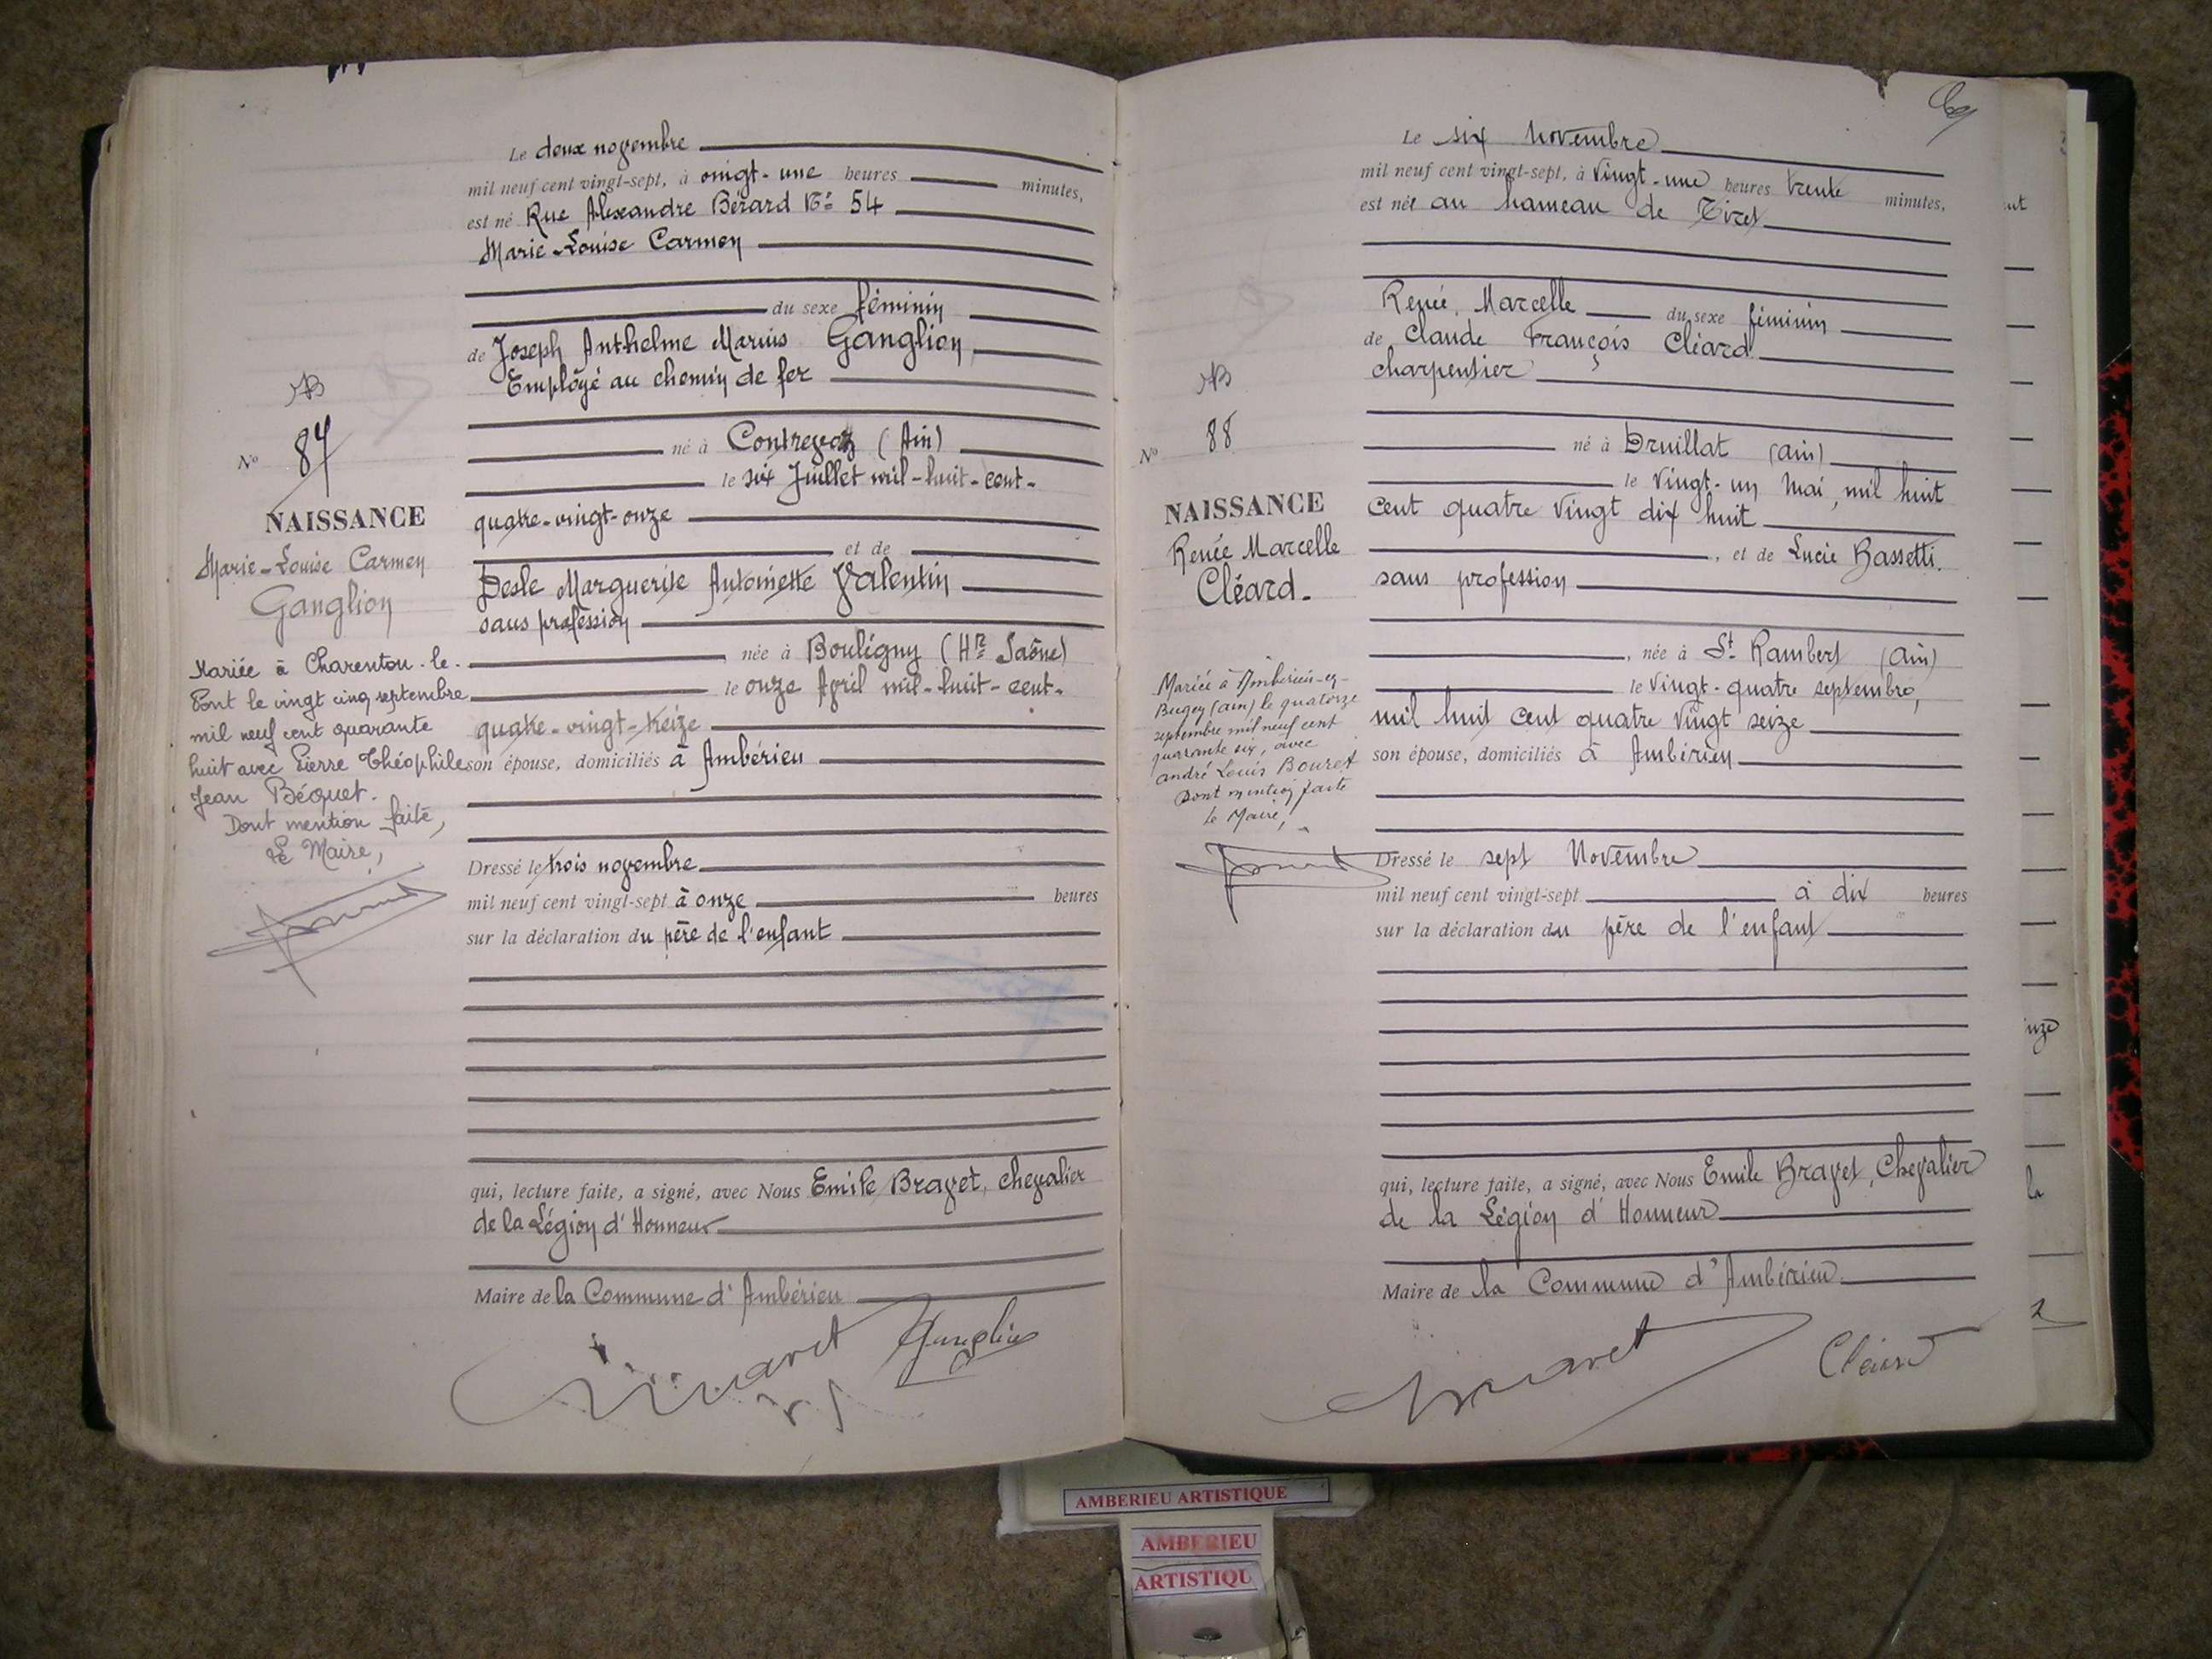 Le deux novembre
mil neuf cent vingt-sept, à vingt-une heures minutes,
est né Rue Alexandre Bérard No 54
Marie-Louise Carmen
du sexe féminin
de Joseph Anthelme Marius Ganglion,
Employé au chemin de fer
né à Contrevoz (Ain)
le six Juillet mil-huit-cent-
quatre-vingt-onze
et de
Desle Marguerite Antoinette Valentin
sans profession
née à Bouligny (Hte Saône)
le onze Avril mil-huit-cent-
quatre-vingt-treize
son épouse, domiciliés à Ambérieu
Dressé le trois novembre
mil neuf cent vingt-sept à onze heures
sur la déclaration du père de l'enfant
qui, lecture faite, a signé, avec Nous Emile Bravet, chevalier
de la Légion d'Honneur
Maire de la Commune d'Ambérieu
Bravet Ganglion
No 87
NAISSANCE
Marie-Louise Carmen
Ganglion
Mariée à Charenton-le-
Pont le vingt cinq septembre
mil neuf cent quarante
huit avec Pierre Théophile
Jean Béquet.
Dont mention faite,
Le Maire,
Le six Novembre
mil neuf cent vingt-sept, à vingt-une heures trente minutes,
est née au hameau de Tiret
Renée, Marcelle du sexe féminin
de Claude François Cléard
charpentier
né à Druillat (ain)
le vingt-un Mai, mil huit
cent quatre vingt dix huit
, et de Lucie Bassetti.
sans profession
, née à St Rambert (ain)
le vingt-quatre septembre,
mil huit cent quatre vingt seize
son épouse, domiciliés à Ambérieu
Dressé le sept Novembre
mil neuf cent vingt-sept à dix heures
sur la déclaration du père de l'enfant
qui, lecture faite, a signé, avec Nous Emile Bravet, Chevalier
de la Légion d'Honneur
Maire de la Commune d'Ambérieu
Bravet Cléard
No 88
NAISSANCE
Renée Marcelle
Cléard.
Mariée à Ambérieu-en-
Bugey (ain) le quatorze
septembre mil neuf cent
quarante six, avec
andré Louis Bouret
Dont mention faite
Le Maire,
AMBERIEU ARTISTIQUE
AMBERIEU
ARTISTIQU